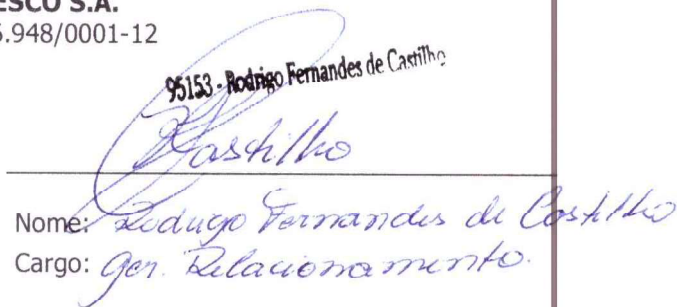 ESCO S.A.
5.948/0001-12
95153 - Rodrigo Fernandes de Castilho
Castilho
Nome: Rodrigo Fernandes de Castilho
Cargo: Ger. Relacionamento.